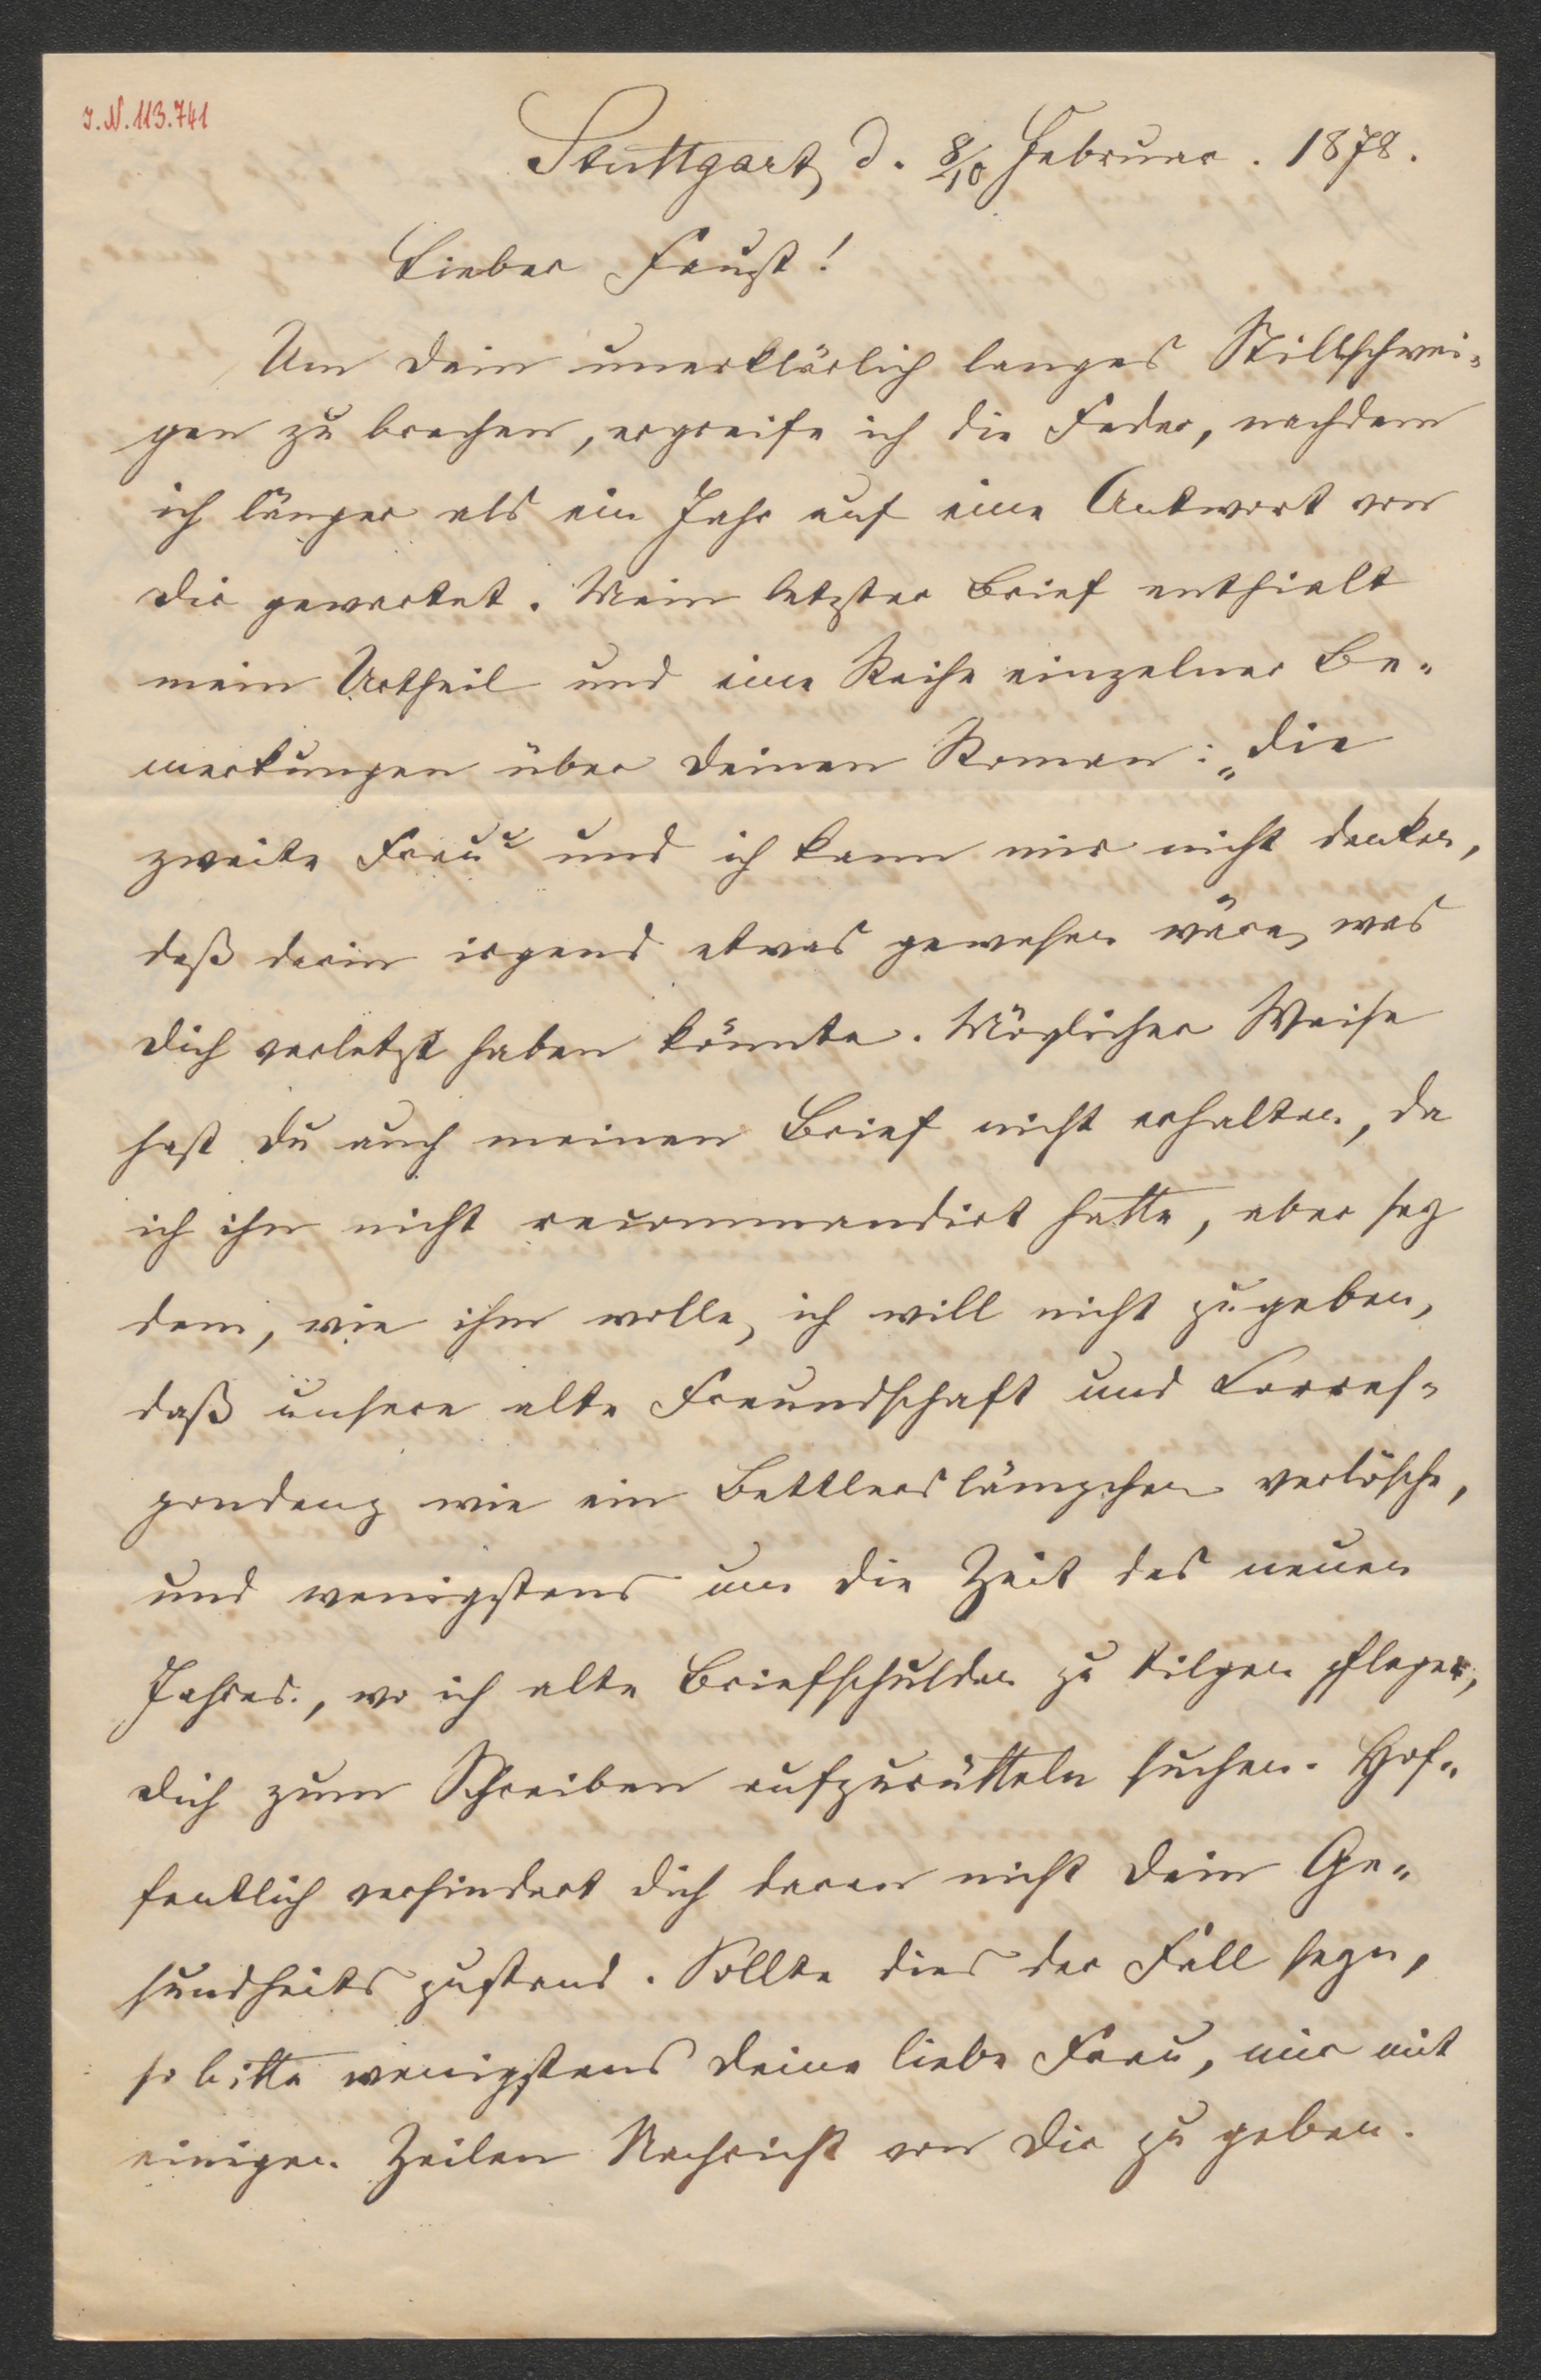 J.N. 113.741
Stuttgart, d. 8/10 Februar. 1878.
Lieber Faust!
Um Dein unerklärlich langes Stillschwei-
gen zu brechen, ergreife ich die Feder, nachdem
ich länger als ein Jahr auf eine Antwort von
Dir gewartet. Mein letzter Brief enthielt
mein Urtheil und eine Reihe einzelner Be-
merkungen über Deinen Roman: „Die
zweite Frau“ und ich kann mir nicht denken,
daß darin irgend etwas gewesen wäre, was
Dich verletzt haben könnte. Möglicher Weise
hast Du auch meinen Brief nicht erhalten, da
ich ihn nicht recommandirt hatte, aber sey
dem, wie ihm wolle, ich will nicht zugeben,
daß unsere alte Freundschaft und Corres-
pondenz wie ein Bettlerslämpchen verlösche,
und wenigstens um die Zeit des neuen
Jahres, wo ich alte Briefschulden zu tilgen pflege,
Dich zum Schreiben aufzurütteln suchen. Hof-
fentlich verhindert Dich daran nicht Dein Ge-
sundheitszustand. Sollte dies der Fall seyn,
so bitte wenigstens Deine liebe Frau, mir mit
einigen Zeilen Nachricht von Dir zu geben.